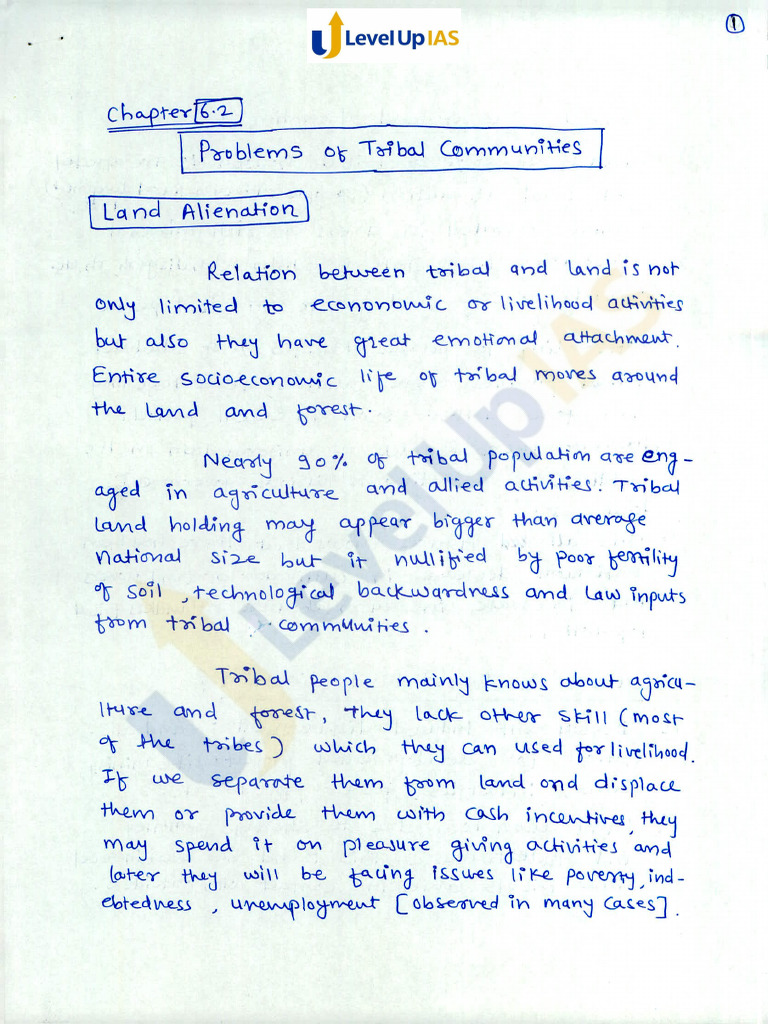 Level Up IAS
1
Chapter 6.2
Problems of Tribal Communities
Land Alienation
Relation between tribal and land is not
only limited to econonomic or livelihood activities
but also they have great emotional attachment.
Entire socioeconomic life of tribal moves around
the land and forest.
Nearly 90% of tribal population are eng-
aged in agriculture and allied activities. Tribal
land holding may appear bigger than average
national size but it nullified by poor fertility
of soil, technological backwardness and law inputs
from tribal communities.
Tribal people mainly knows about agricu-
lture and forest, they lack other skill (most
of the tribes) which they can used for livelihood.
If we separate them from land and displace
them or provide them with cash incentives, they
may spend it on pleasure giving activities and
later they will be facing issues like poverty, ind-
ebtedness, unemployment [observed in many cases].
Level Up IAS